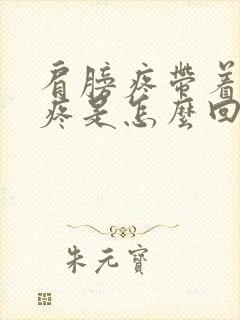 肩膀疼帶着
疼是怎麽回
朱元寶